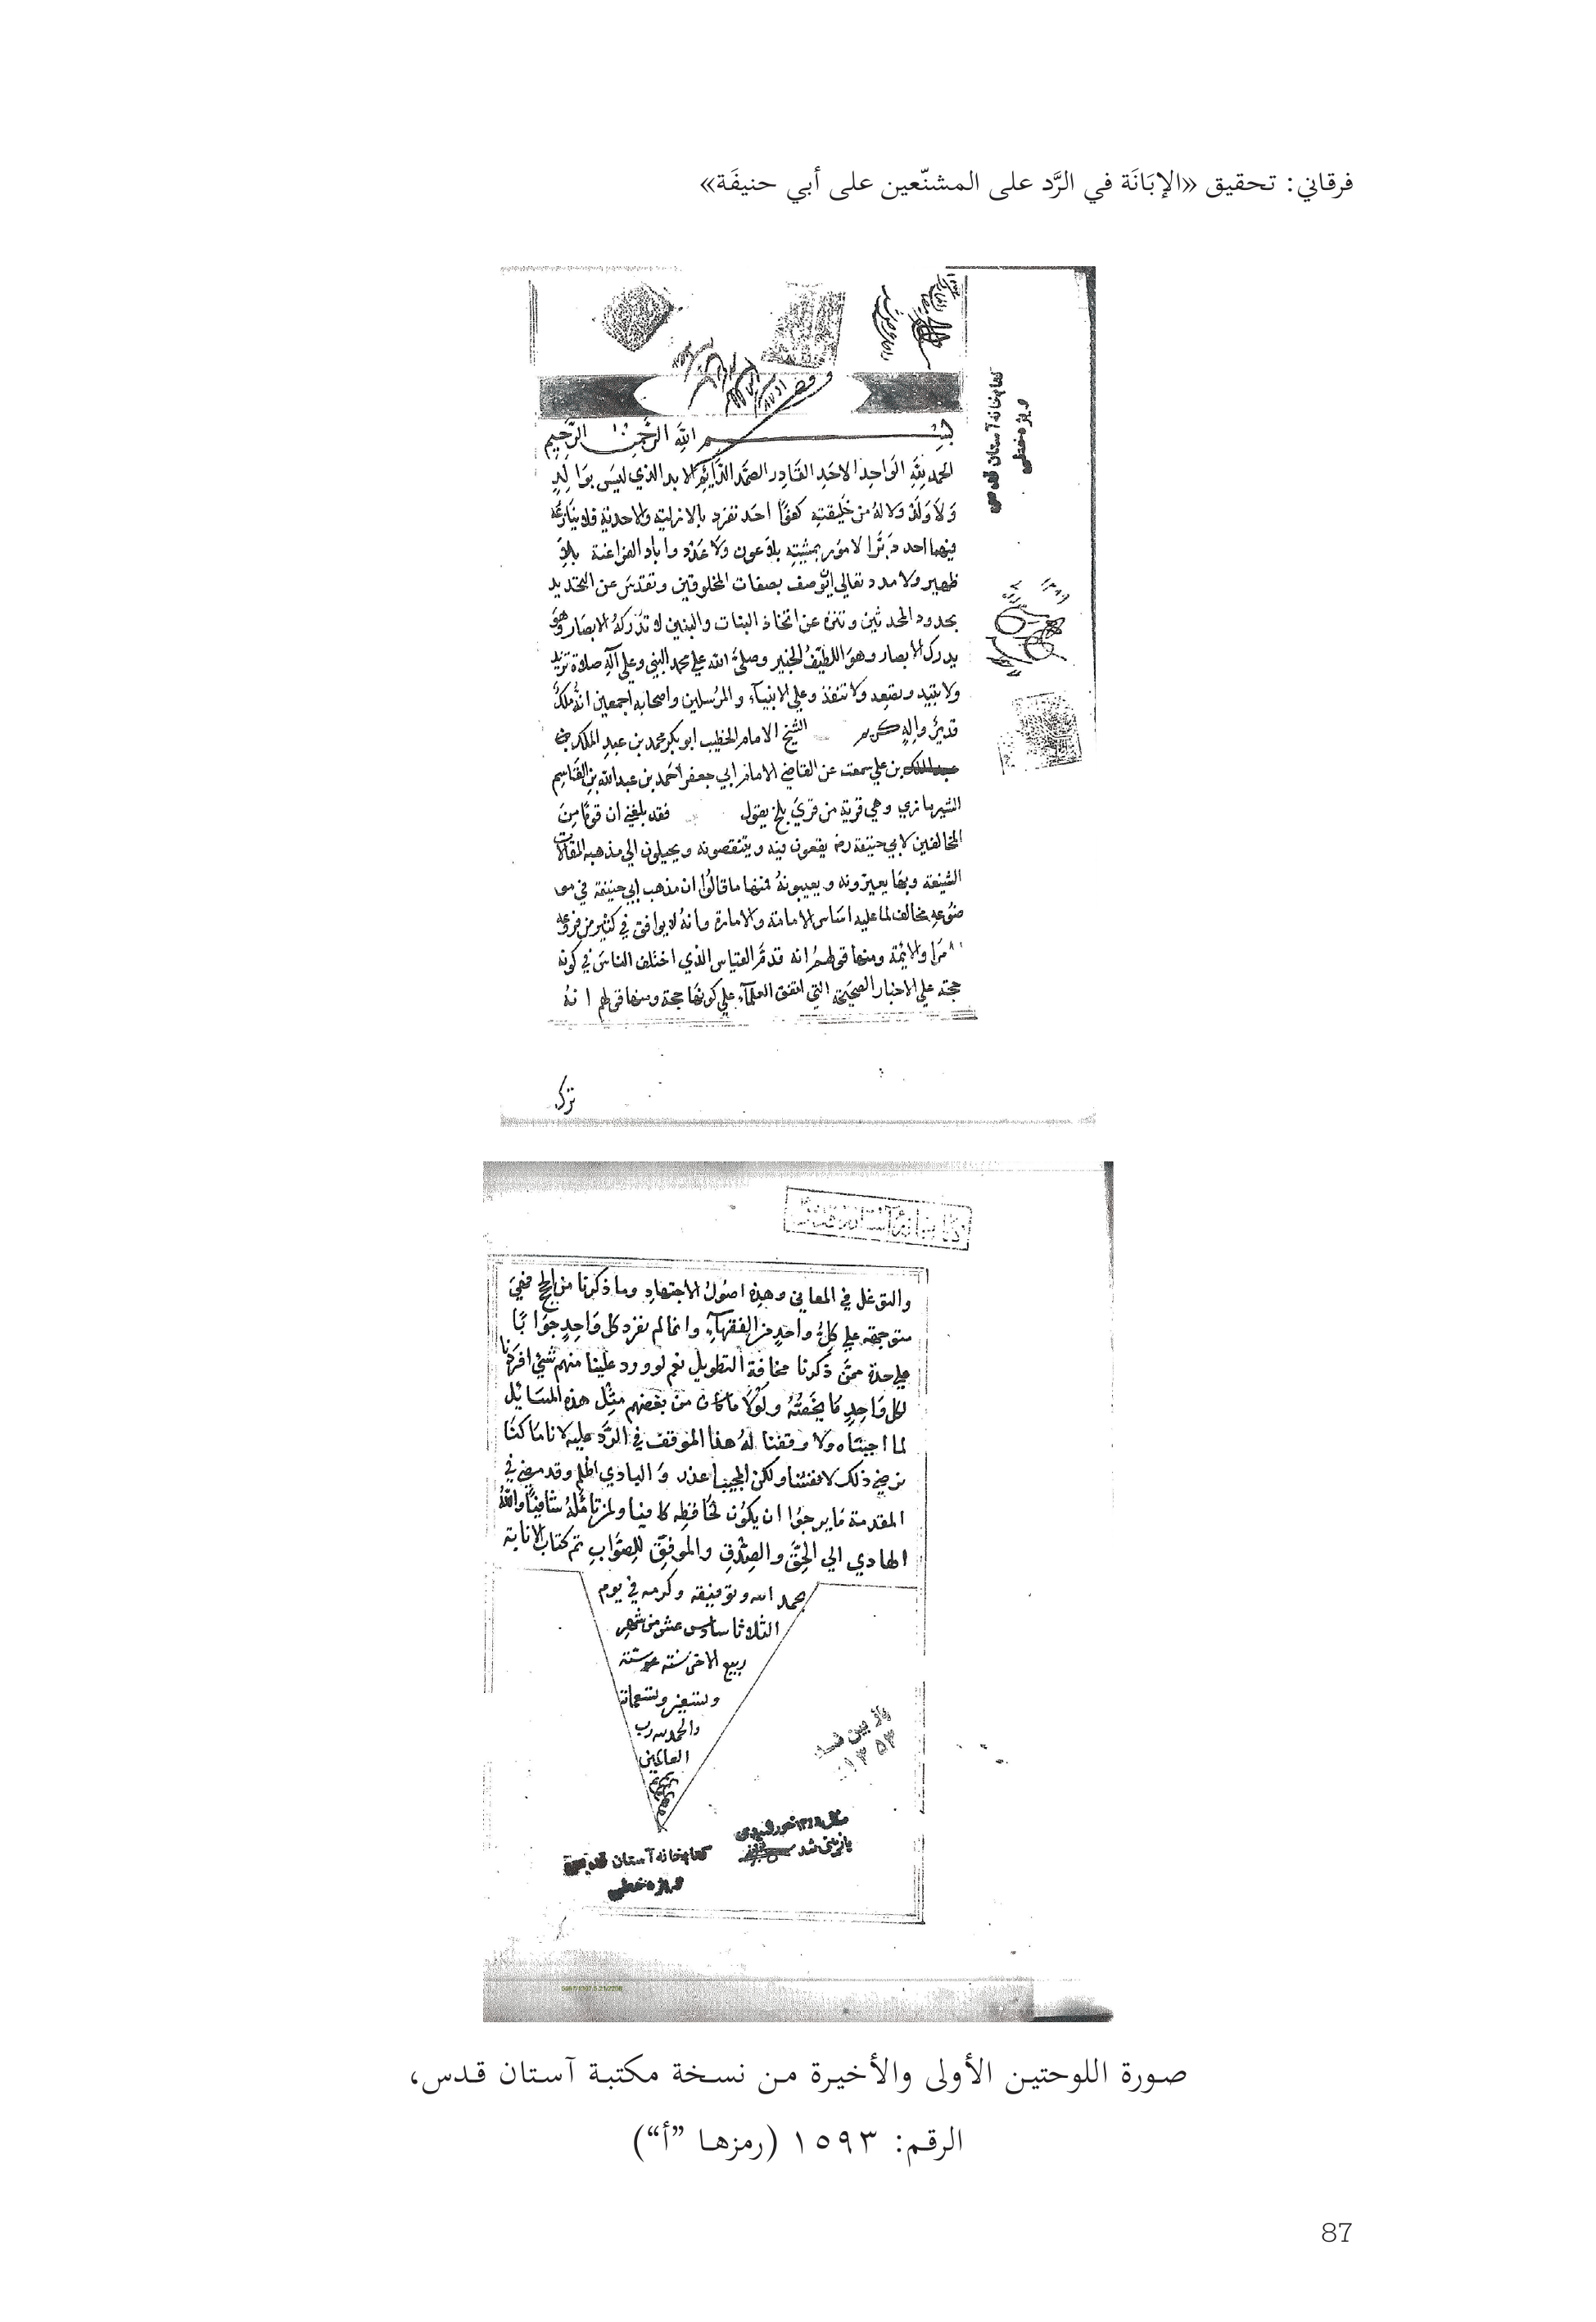 فرقاني: تحقيق «الإبَانَة في الرَّد على المشنّعين على أبي حنيفَة»
بسم الله الرحمن الرحيم
الحمد لله الواحد الاحد القادر الصمد الدايم الابد الذي ليس بوالد
ولا ولد ولا له من خليقته كفوًا احد تفرد بالازلية والاحدية فلا ينازعه
فيهما احد دبّر الامور بمشيته بلا عون ولا عدد واباد الفراعنة بلا
ظهير ولا مدد تعالى ان يوصف بصفات المخلوقين وتقدس عن التحديد
بحدود المحدثين وتنزه عن اتخاذ البنات والبنين لا تدركه الابصار وهو
يدرك الابصار وهو اللطيف الخبير وصلى الله علي محمد النبي وعلي آله صلاة تزيد
ولا تبيد وتصعد ولا تنفذ وعلي الانبيآء والمرسلين واصحابه اجمعين انه ملك
قدير واله كريم الشيخ الامام الخطيب ابو بكر محمد بن عبد الملك بن
بن علي سمعت عن القاضي الامام ابي جعفر احمد بن عبد الله بن القاسم
وهي قرية من قري بلخ يقول فقد بلغني ان قومًا من
المخالفين لابي حنيفة رض يقعون فيه ويتنقصونه ويحيلون الي مذهبه المقالات
الشنيعة وبها يعيرونه ويعيبونه فمنها ما قالوا ان مذهب ابي حنيفة في مو
ضوعه مخالف لما عليه اساس الامامة والامارة وانه لا يوافق في كثير من فروعه
الامرا والايمة ومنها قولهم انه قدم القياس الذي اختلف الناس في كونه
حجة علي الاخبار الصحيحة التي اتفق العلمآء علي كونها حجة ومنها قولهم انه
ترك
كتابخانه آستان قدس
ويژه خطي
والتوغل في المعاني وهذه اصول الاجتهاد وما ذكرنا من الحجج فهي
متوجهة علي كل واحد من الفقهآء وانما لم نفرد كل واحد جوابًا
علي حدة ممن ذكرنا مخافة التطويل نعم لو ورد علينا منهم شيء افردنا
لكل واحد ما يخصه ولولا ما كان من بعضهم مثل هذه المسائل
لما اجبناه ولا وقفنا له هذا الموقف في الرد عليه لانا ما كنا
نرضي ذلك لانفسنا ولكن المجيب عذر والبادي اظلم وقد مضي في
المقدمة ما يرجوا ان يكون لحافظه كافيا ولمن تامله شافيًا والله
الهادي الي الحق والصدق والموفق للصواب تم كتاب الابانة
بحمد الله وتوفيقه وكرمه في يوم
الثلاثا سادس عشر من شهر
ربيع الاخر سنة
وتسعماية
والحمد لله رب
العالمين
باز بين شد
١٣٥٣
بازبيني شد
كتابخانه آستان قدس
ويژه خطي
صورة اللوحتين الأولى والأخيرة من نسخة مكتبة آستان قدس،
الرقم: ١٥٩٣ (رمزها ”أ“)
87